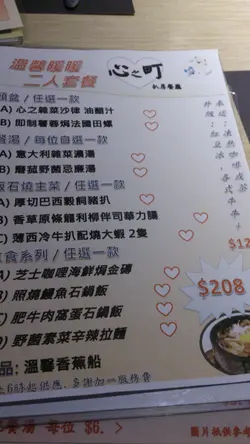 溫馨暖暖
二人套餐
心之町
扒房餐廳
頭盤 / 任選一款
A) 心之雜菜沙律 油醋汁
B) 即制薯蓉焗法國田螺
餐湯 / 每位自選一款
A) 意大利雜菜濃湯
B) 磨菇野菌忌廉湯
板石燒主菜 / 任選一款
A) 厚切巴西穀飼豬扒
B) 香草原條龍利柳伴司華力腸
C) 薄西冷牛扒配燒大蝦 2隻
主食系列 / 任選一款
A) 芝士咖喱海鮮焗金磚
B) 照燒鰻魚石鍋飯
C) 肥牛肉窩蛋石鍋飯
D) 野菌素菜辛辣拉麵
品: 溫馨香蕉船
$12
$208
餐湯 每位 $6. >
圖片祇供參考